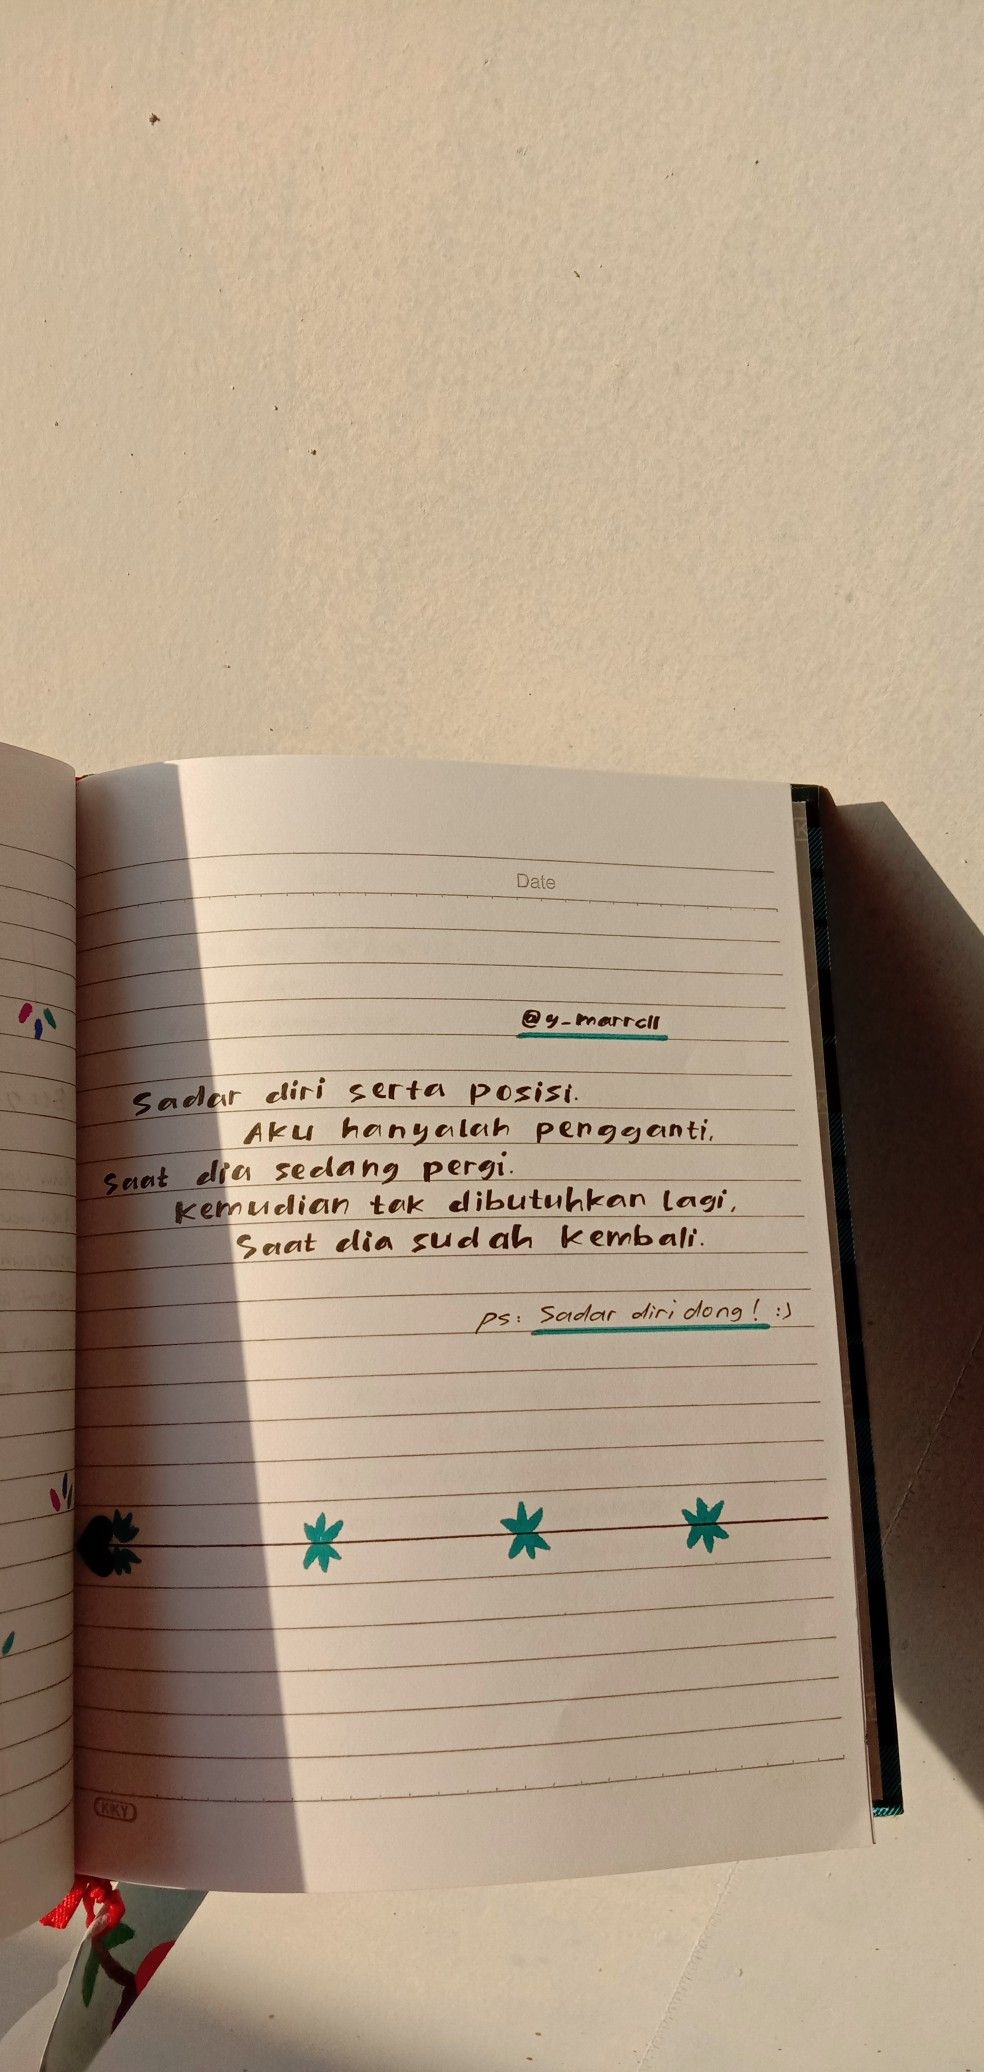 Date
@y_marrell
Sadar diri serta posisi.
Aku hanyalah pengganti,
Saat dia sedang pergi.
Kemudian tak dibutuhkan lagi,
Saat dia sudah kembali.
ps: Sadar diri dong! :)
KIKY